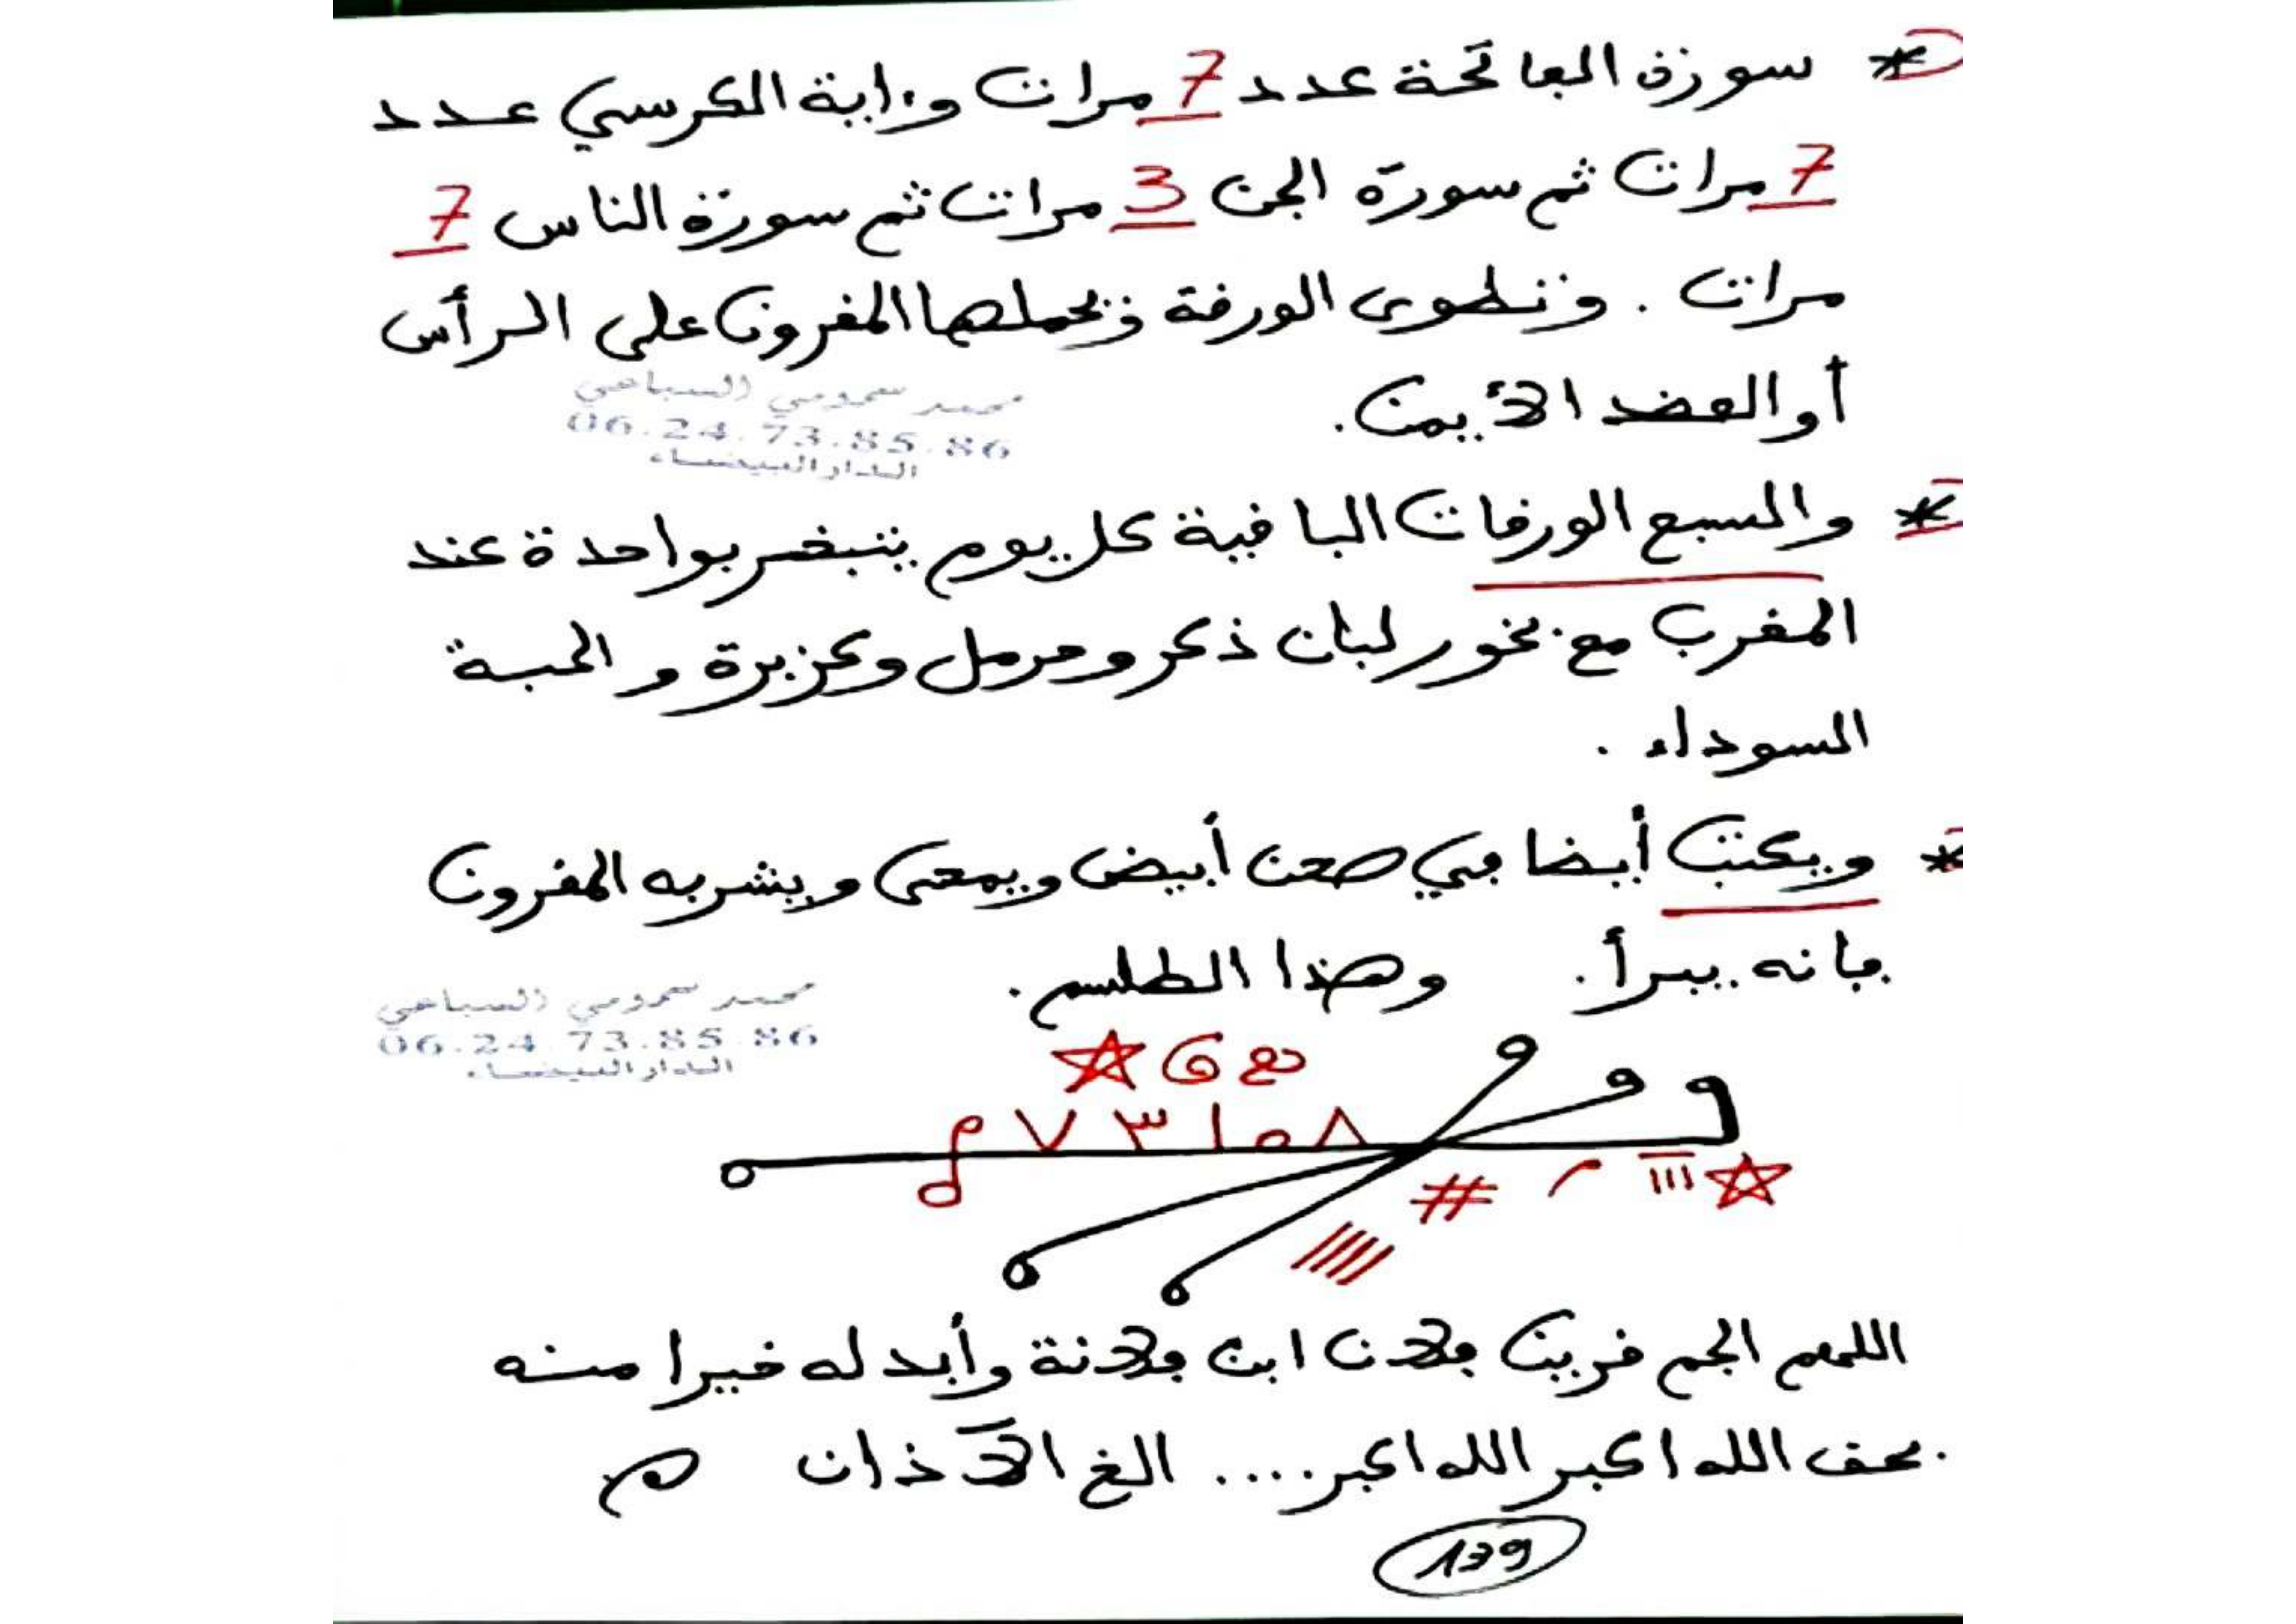 * سورة الفاتحة عدد 7 مرات وءاية الكرسي عدد
7 مرات ثم سورة الجن 3 مرات ثم سورة الناس 7
مرات . وتطوى الورقة ويحملها المقرون على الرأس
أو العضد الأيمن.
محمد سمومي السباعي
06.24.73.85.86
الدار البيضاء
* والسبع الورقات الباقية كل يوم يتبخر بواحدة عند
المغرب مع بخور لبان ذكر وحرمل وكزبرة و الحبة
السوداء .
* ويكتب أيضا في صحن أبيض ويمحى ويشربه المقرون
فإنه يبرأ. وهذا الطلسم .
محمد سمومي السباعي
06.24.73.85.86
الدار البيضاء
٨ ٥ ١ ٣ ٧
#
اللهم الجم قرين فلان ابن فلانة وأبدله خيرا منه
بحق الله اكبر الله اكبر.... الخ الآذان
139